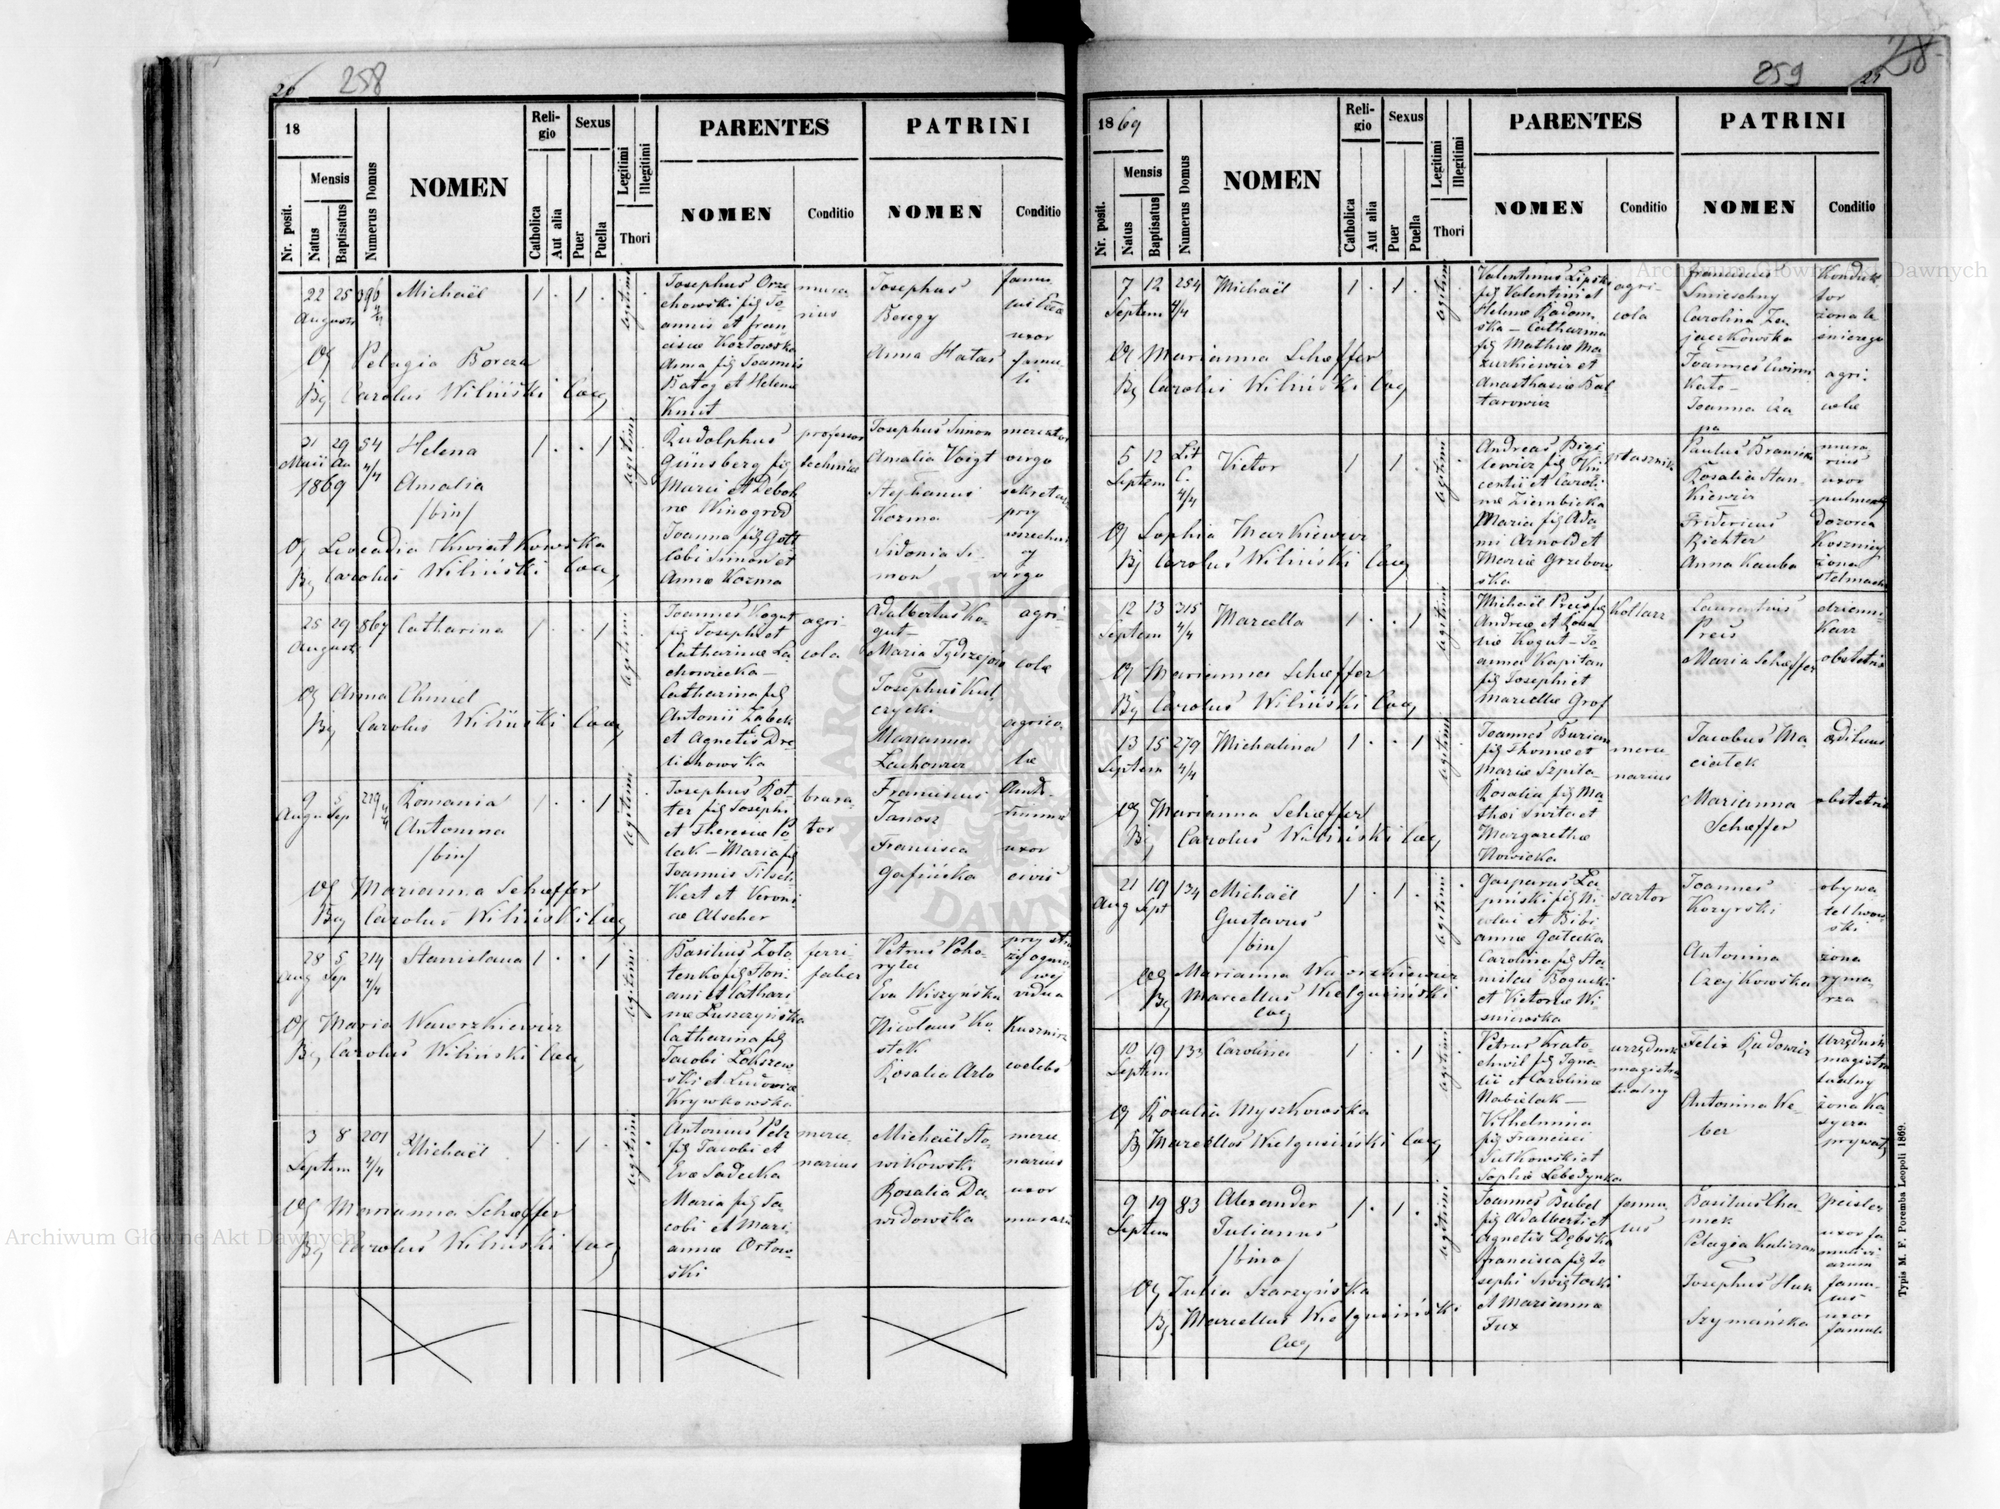 26 258
18
Nr. posit.
Mensis
Natus
Baptisatus
Numerus Domus
NOMEN
Religio
Catholica
Aut alia
Sexus
Puer
Puella
Legitimi
Illegitimi
Thori
PARENTES
NOMEN
Conditio
PATRINI
NOMEN
Conditio
22 25
Augusti
Michaël
1 . 1 .
legitimi
Josephus Orze-
chowski flg Jo-
annis et Fran-
ciscæ Kozłowska
Anna flg Joannis
Batog et Helenæ
Knut
mura-
rius
Josephus
Beregy
Anna Hatas
famu-
uxor
famu-
li
Og Pelagia Boreza
Bg Carolus Wiliński Coog
31 29 54
Maii Au 4/4
1869
Helena
Amalia
/bin/
1 . . 1
legitimi
Rudolphus
Günsberg flg
Marii et Deboh
næ Winogrod
Joanna flg Gott
lobi Simon et
Annæ Kozma
professor
technicæ
Josephus Simon
Amalia Voigt
Stephanus
Kozma
Sidonia Si-
mon
mercator
virgo
sekretar
przy
virgo
Og Leocadia Kwiatkowska
Bg Carolus Wiliński Coog
25 29 867
August
Catharina
1 . . 1
legitimi
Joannes Kogut
flg Josephi et
Catharinæ La-
chowiecka -
Catharina flg
Antonii Ząbek
et Agnetis Dre-
lichowska
agri-
cola
Adalbertus Ko-
gut -
Maria Jędrzejow
Josephus Kul-
czycki
Marianna
Lachowicz
agri-
colæ
agrico-
læ
Og Anna Chmiel
Bg Carolus Wiliński Coog
9 5 219 4/4
Augu Sep
Romania
Antonina
/bin/
1 . . 1
legitimi
Josephus Rot-
ter flg Josephi
et Theresiæ Po-
lak - Maria flg
Joannis Titsch
Kert et Veroni-
cæ Alscher
braxa-
tor
Franciscus
Janosz
Francisca
Gafińska
uxor
civis
Og Marianna Schæffer
Bg Carolus Wiliński Coog
28 5 214
Aug Sep 4/4
Stanislaua
1 . . 1
legitimi
Basilius Zoło-
tenko flg Flori-
ani et Cathari-
næ Luszczyńska
Catharina flg
Jacobi Łokszew-
ski et Ludovicæ
Krywkowska
ferri
faber
Petrus Poho-
ryles
Eva Wiszyńska
Nicolaus Ko-
stek
Rosalia Arlo
przy stra-
ży ognio-
wej
vidua
Kusznierz
coelebs
Og Maria Wawrzkiewicz
Bg Carolus Wiliński Coog
3 8 201
Septem 4/4
Michaël
1 . 1 .
legitimi
Antonius Pelz
flg Jacobi et
Evæ Sadecka
Maria flg Ja-
cobi et Mari-
annæ Orłow-
ski
merce-
narius
Michaël Sło-
wikowski
Rosalia Da-
widowska
merce-
narius
uxor
murarii
Og Marianna Schæffer
Bg Carolus Wiliński Coog
28
259 27
1869
Nr. posit.
Mensis
Natus
Baptisatus
Numerus Domus
NOMEN
Religio
Catholica
Aut alia
Sexus
Puer
Puella
Legitimi
Illegitimi
Thori
PARENTES
NOMEN
Conditio
PATRINI
NOMEN
Conditio
7 12 254
Septem 4/4
Michaël
1 . 1 .
legitimi
Valentinus Lipski
flg Valentini et
Helenæ Radom-
ska - Catharina
flg Mathiæ Ma-
zurkiewicz et
Anasthasiæ Bal-
tarowicz
agri-
cola
Franciscus
Smieschny
Carolina Za-
jaczkowska
Joannes Cwirni-
Kato -
Joanna Cza-
pa
Konduk-
tor
żona le
śniczego
agri-
colæ
Og Marianna Schæffer
Bg Carolus Wiliński Coog
5 12 Lit
Septem C. 4/4
Victor
1 1 .
legitimi
Andreas Bigi-
lewicz flg Vin-
centii et Caroli-
næ Ziembicka
Maria flg Ada-
mi Arnold et
Mariæ Grzebow-
ska
ptasznik
Paulus Braniska
Rosalia Stan-
Kiewicz
Fridericus
Richter
Anna Kauba
mura-
rius
uxor
dozorca
żona
stelmacha
Og Sophia Markiewicz
Bj Carolus Wiliński Coog
12 13 315
Septem 4/4
Marcella
1 . . 1
legitimi
Michaël Preis flg
Andreæ et Roza-
liæ Kogut - Jo-
anna Kapitan
flg Josephi et
Marcellæ Grof
Kotlarz
Laurentius
Preis
Maria Schæffer
dzienni-
karz
obstetrix
Og Marianna Schæffer
Bg Carolus Wiliński Coog
13 15 279
Septem 4/4
Michalina
1 . . 1
legitimi
Joannes Burian
flg Thomæ et
Mariæ Szpita-
Rosalia flg Ma-
thæi Swita et
Margarethæ
Nowicka
merce-
narius
Jacobus Ma-
ciałek
Marianna
Schæffer
ædituus
obstetrix
Og Marianna Schæffer
Bj Carolus Wiliński Coog
21 19 134
Aug Sept
Michaël
Gustavus
/bin/
1 . 1 .
legitimi
Gasparus Ła-
piński flg Ni-
colai et Bibi-
annæ Gałecka
Carolina flg Sta-
nislai Bogucki
et Victoriæ Wi-
śniewska
sartor
Joannes
Kozyrski
Antonina
Czeykowska
obywa-
tel lwow-
ski
żona
ryma-
rza
Og Marianna Wawrzkiewicz
Bg Marcellus Wielgusiński
Coog
10 19 133
Septem
Carolina
1 . 1
legitimi
Petrus Krato-
chwil flg Igna-
tii et Carolinæ
Nabielak -
Vilhelmina
flg Francisci
Sutkowski et
Sophiæ Lebedynka
urzędnik
magistra-
tualny
Felix Radowicz
Antonina We-
ber
Urzędnik
magistra
tualny
żona Ka-
syera
prywat.
Og Rosalia Myszkowska
Bg Marcellus Wielgusiński Coog
9 19 83
Septem
Alexander
Julianus
/bino/
1 . 1 .
legitimi
Joannes Bubel
flg Adalberti et
Agnetis Dębska
Francisca flg Jo-
sephi Swiątoski
et Marianna
Fux
famu-
lus
Basilius Cho-
mek
Pelagia Kaliczak
Josephus Huk
Szymańska
greisler
uxor fa-
famu-
lus
uxor
famuli
Og Julia Szarzyńska
Bg Marcellus Wielgusiński
Coog
Typis M. F. Poremba Leopoli 1869.
Archiwum Główne Akt Dawnych
Archiwum Główne Akt Dawnych